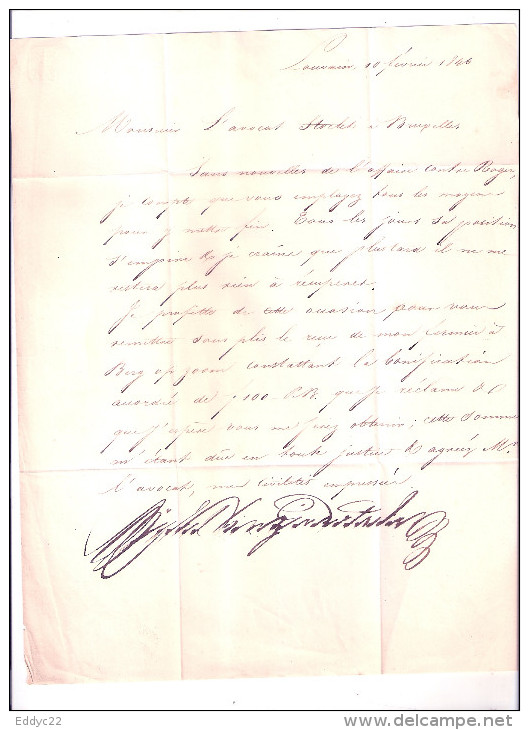 Louvain 10 février 1846
Monsieur l'avocat à Bruxelles
Sans nouvelles de l'affaire contre Roger,
je compte que vous employez tous les moyens
pour y mettre fin. Tous les jours sa position
s'empire & je crains que plus tard il ne me
restera plus rien à récupérer.
Je profite de cette occasion pour vous
remettre sous plis le reçu de mon fermier à
Berg op zoom constattant la bonification
accordée de f 100 P.B. que je réclame
que j'espère vous me ferez obtenir; cette somme
m'étant dûe en toute justice & agréez Mr
l'avocat, mes civilités empressées
Eddyc22
www.delcampe.net